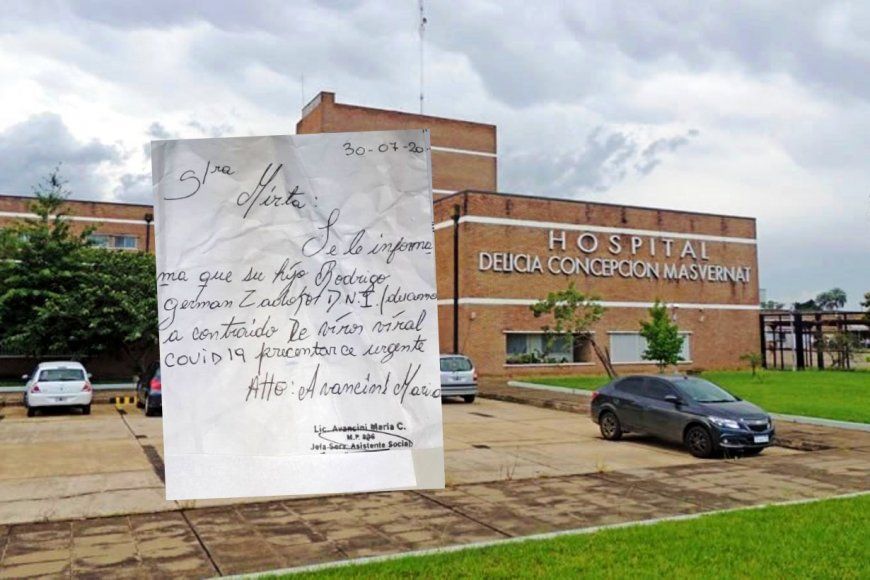 30-07-20
Sra
Mirta:
Se le informa
ma que su hijo Rodrigo
german D.N.I.
a contraido De viros viral
COVID19 precentarce urgente
Atto: Avancini Maria
Lic. Avancini Maria C.
M.P. 896
Jefa Serv. Asistente Social
HOSPITAL
DELICIA CONCEPCION MASVERNAT